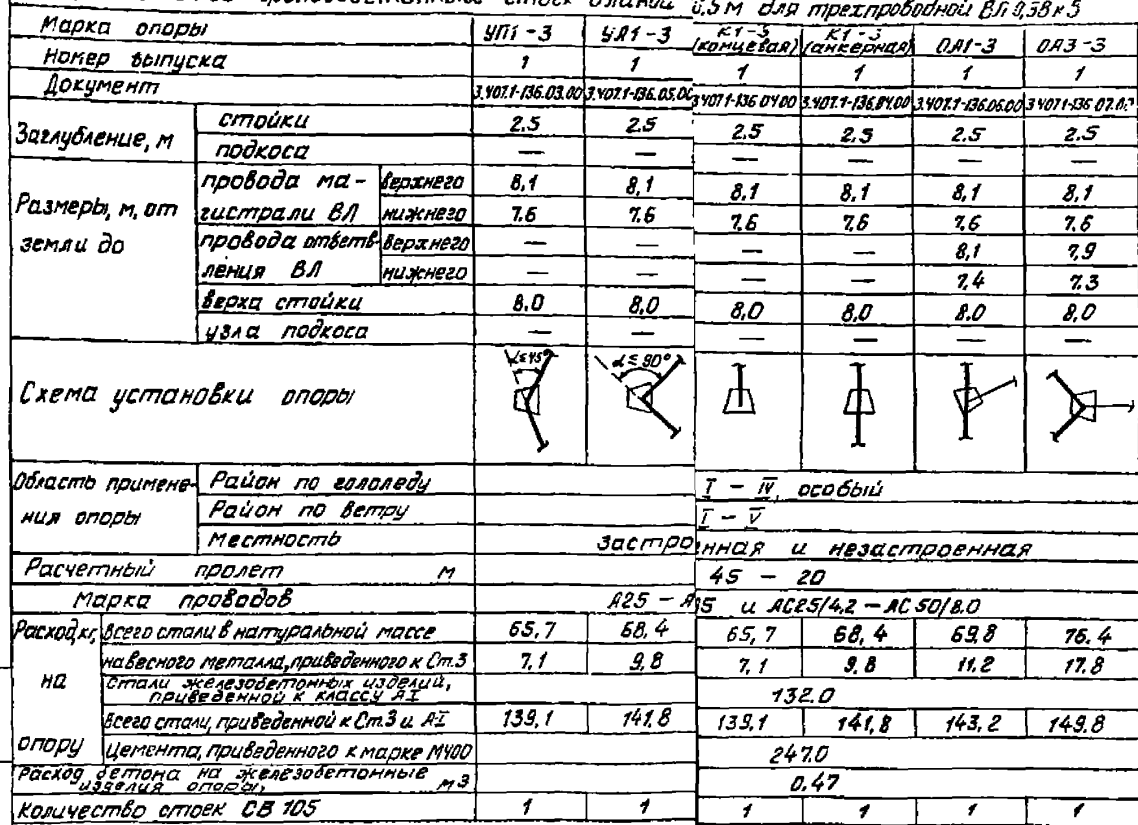 стоек длиной 0,5 м для трехпроводной ВЛ 0,38 к
Марка опоры УП1-3 УА1-3 К1-3 (концевая) К1-3 (анкерная) ОА1-3 ОА3-3
Номер выпуска 1 1 1 1 1 1
Документ 3.407.1-136.03.00 3.407.1-136.05.00 3.407.1-136.04.00 3.407.1-136.04.00 3.407.1-136.06.00 3.407.1-136.07.0
Заглубление, м стойки 2.5 2.5 2.5 2.5 2.5 2.5
подкоса — — — — — —
Размеры, м, от земли до провода магистрали ВЛ верхнего 8,1 8,1 8,1 8,1 8,1 8,1
нижнего 7.6 7.6 7.6 7.6 7.6 7.6
провода ответвления ВЛ верхнего — — — — 8,1 7,9
нижнего — — — — 7,4 7.3
верха стойки 8.0 8,0 8,0 8,0 8.0 8,0
узла подкоса — — — — — —
Схема установки опоры α≤45° α≤90°
Область применения опоры Район по гололеду I – IV, особый
Район по ветру I – V
Местность Застроенная и незастроенная
Расчетный пролет м 45 – 20
Марка проводов А25 – А 35 и АС25/4,2 – АС 50/8.0
Расход, кг, на опору Всего стали в натуральной массе 65,7 68,4 65,7 68,4 69.8 76.4
навесного металла, приведенного к Ст.3 7,1 9,8 7,1 9.8 11.2 17.8
Стали железобетонных изделий, приведенной к классу АI 132.0
Всего стали, приведенной к Ст.3 и АI 139,1 141.8 139.1 141,8 143,2 149.8
Цемента, приведенного к марке М400 247.0
Расход бетона на железобетонные изделия опоры, м3 0.47
Количество стоек СВ 105 1 1 1 1 1 1